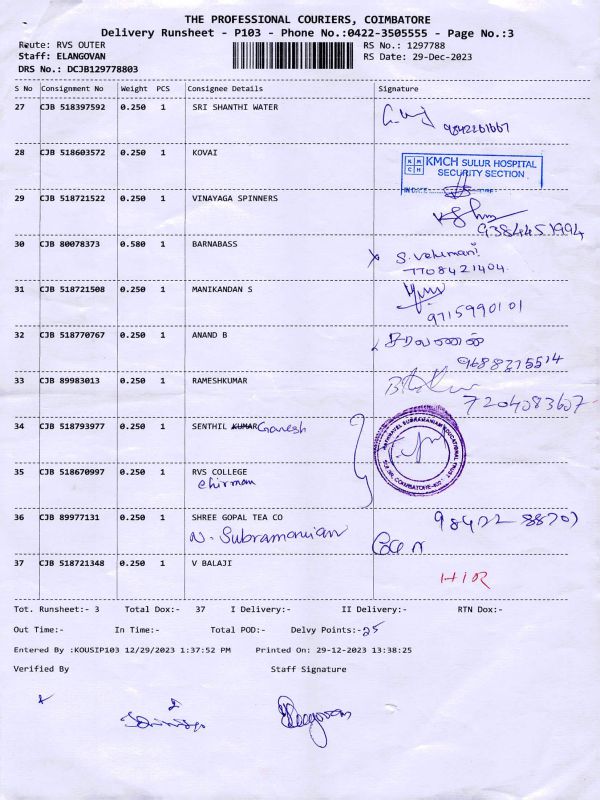 THE PROFESSIONAL COURIERS, COIMBATORE
Delivery Runsheet - P103 - Phone No.:0422-3505555 - Page No.:3
Route: RVS OUTER RS No.: 1297788
Staff: ELANGOVAN RS Date: 29-Dec-2023
DRS No.: DCJB129778803
S No Consignment No Weight PCS Consignee Details Signature
27 CJB 518397592 0.250 1 SRI SHANTHI WATER
9842261667
28 CJB 518603572 0.250 1 KOVAI
KMCH KMCH SULUR HOSPITAL
SECURITY SECTION
IN DATE: TIME:
29 CJB 518721522 0.250 1 VINAYAGA SPINNERS
9384451994
30 CJB 80078373 0.580 1 BARNABASS
S. Velumani
7708421404
31 CJB 518721508 0.250 1 MANIKANDAN S
9715990101
32 CJB 518770767 0.250 1 ANAND B
சரவணன்
9688275514
33 CJB 89983013 0.250 1 RAMESHKUMAR
7204083607
34 CJB 518793977 0.250 1 SENTHIL KUMAR Ganesh
35 CJB 518670997 0.250 1 RVS COLLEGE
chirman
36 CJB 89977131 0.250 1 SHREE GOPAL TEA CO
N. Subramanian
98422-88707
37 CJB 518721348 0.250 1 V BALAJI
HIR
Tot. Runsheet:- 3 Total Dox:- 37 I Delivery:- II Delivery:- RTN Dox:-
Out Time:- In Time:- Total POD:- Delvy Points:-25
Entered By :KOUSIP103 12/29/2023 1:37:52 PM Printed On: 29-12-2023 13:38:25
Verified By Staff Signature
Elangovan